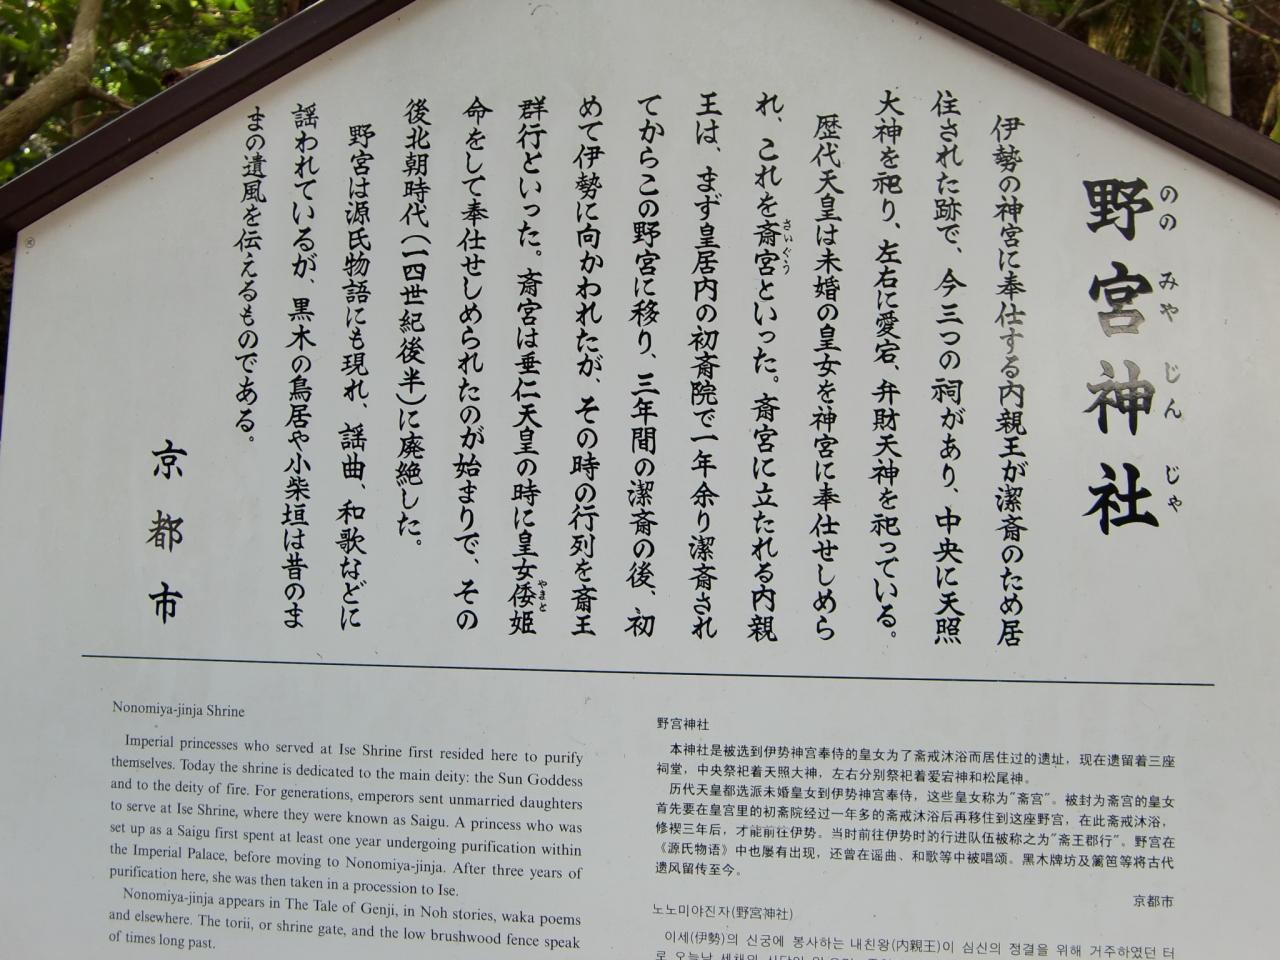 野宮神社
ののみやじんじゃ
伊勢の神宮に奉仕する内親王が潔斎のため居
住された跡で、今三つの祠があり、中央に天照
大神を祀り、左右に愛宕、弁財天神を祀っている。
歴代天皇は未婚の皇女を神宮に奉仕せしめら
れ、これを斎宮といった。斎宮に立たれる内親
さいぐう
王は、まず皇居内の初斎院で一年余り潔斎され
てからこの野宮に移り、三年間の潔斎の後、初
めて伊勢に向かわれたが、その時の行列を斎王
群行といった。斎宮は垂仁天皇の時に皇女倭姫
やまと
命をして奉仕せしめられたのが始まりで、その
後北朝時代(一四世紀後半)に廃絶した。
野宮は源氏物語にも現れ、謡曲、和歌などに
謡われているが、黒木の鳥居や小柴垣は昔のま
まの遺風を伝えるものである。
京都市
Nonomiya-jinja Shrine
Imperial princesses who served at Ise Shrine first resided here to purify
themselves. Today the shrine is dedicated to the main deity: the Sun Goddess
and to the deity of fire. For generations, emperors sent unmarried daughters
to serve at Ise Shrine, where they were known as Saigu. A princess who was
set up as a Saigu first spent at least one year undergoing purification within
the Imperial Palace, before moving to Nonomiya-jinja. After three years of
purification here, she was then taken in a procession to Ise.
Nonomiya-jinja appears in The Tale of Genji, in Noh stories, waka poems
and elsewhere. The torii, or shrine gate, and the low brushwood fence speak
of times long past.
野宫神社
本神社是被选到伊势神宫奉侍的皇女为了斋戒沐浴而居住过的遗址，现在遗留着三座
祠堂，中央祭祀着天照大神，左右分别祭祀着爱宕神和松尾神。
历代天皇都选派未婚皇女到伊势神宫奉侍，这些皇女称为"斋宫"。被封为斋宫的皇女
首先要在皇宫里的初斋院经过一年多的斋戒沐浴后再移住到这座野宫，在此斋戒沐浴，
修禊三年后，才能前往伊势。当时前往伊势时的行进队伍被称之为"斋王郡行"。野宫在
《源氏物语》中也屡有出现，还曾在谣曲、和歌等中被唱颂。黑木牌坊及篱笆等将古代
遗风留传至今。
京都市
노노미야진자(野宮神社)
이세(伊勢)의 신궁에 봉사하는 내친왕(内親王)이 심신의 정결을 위해 거주하였던 터